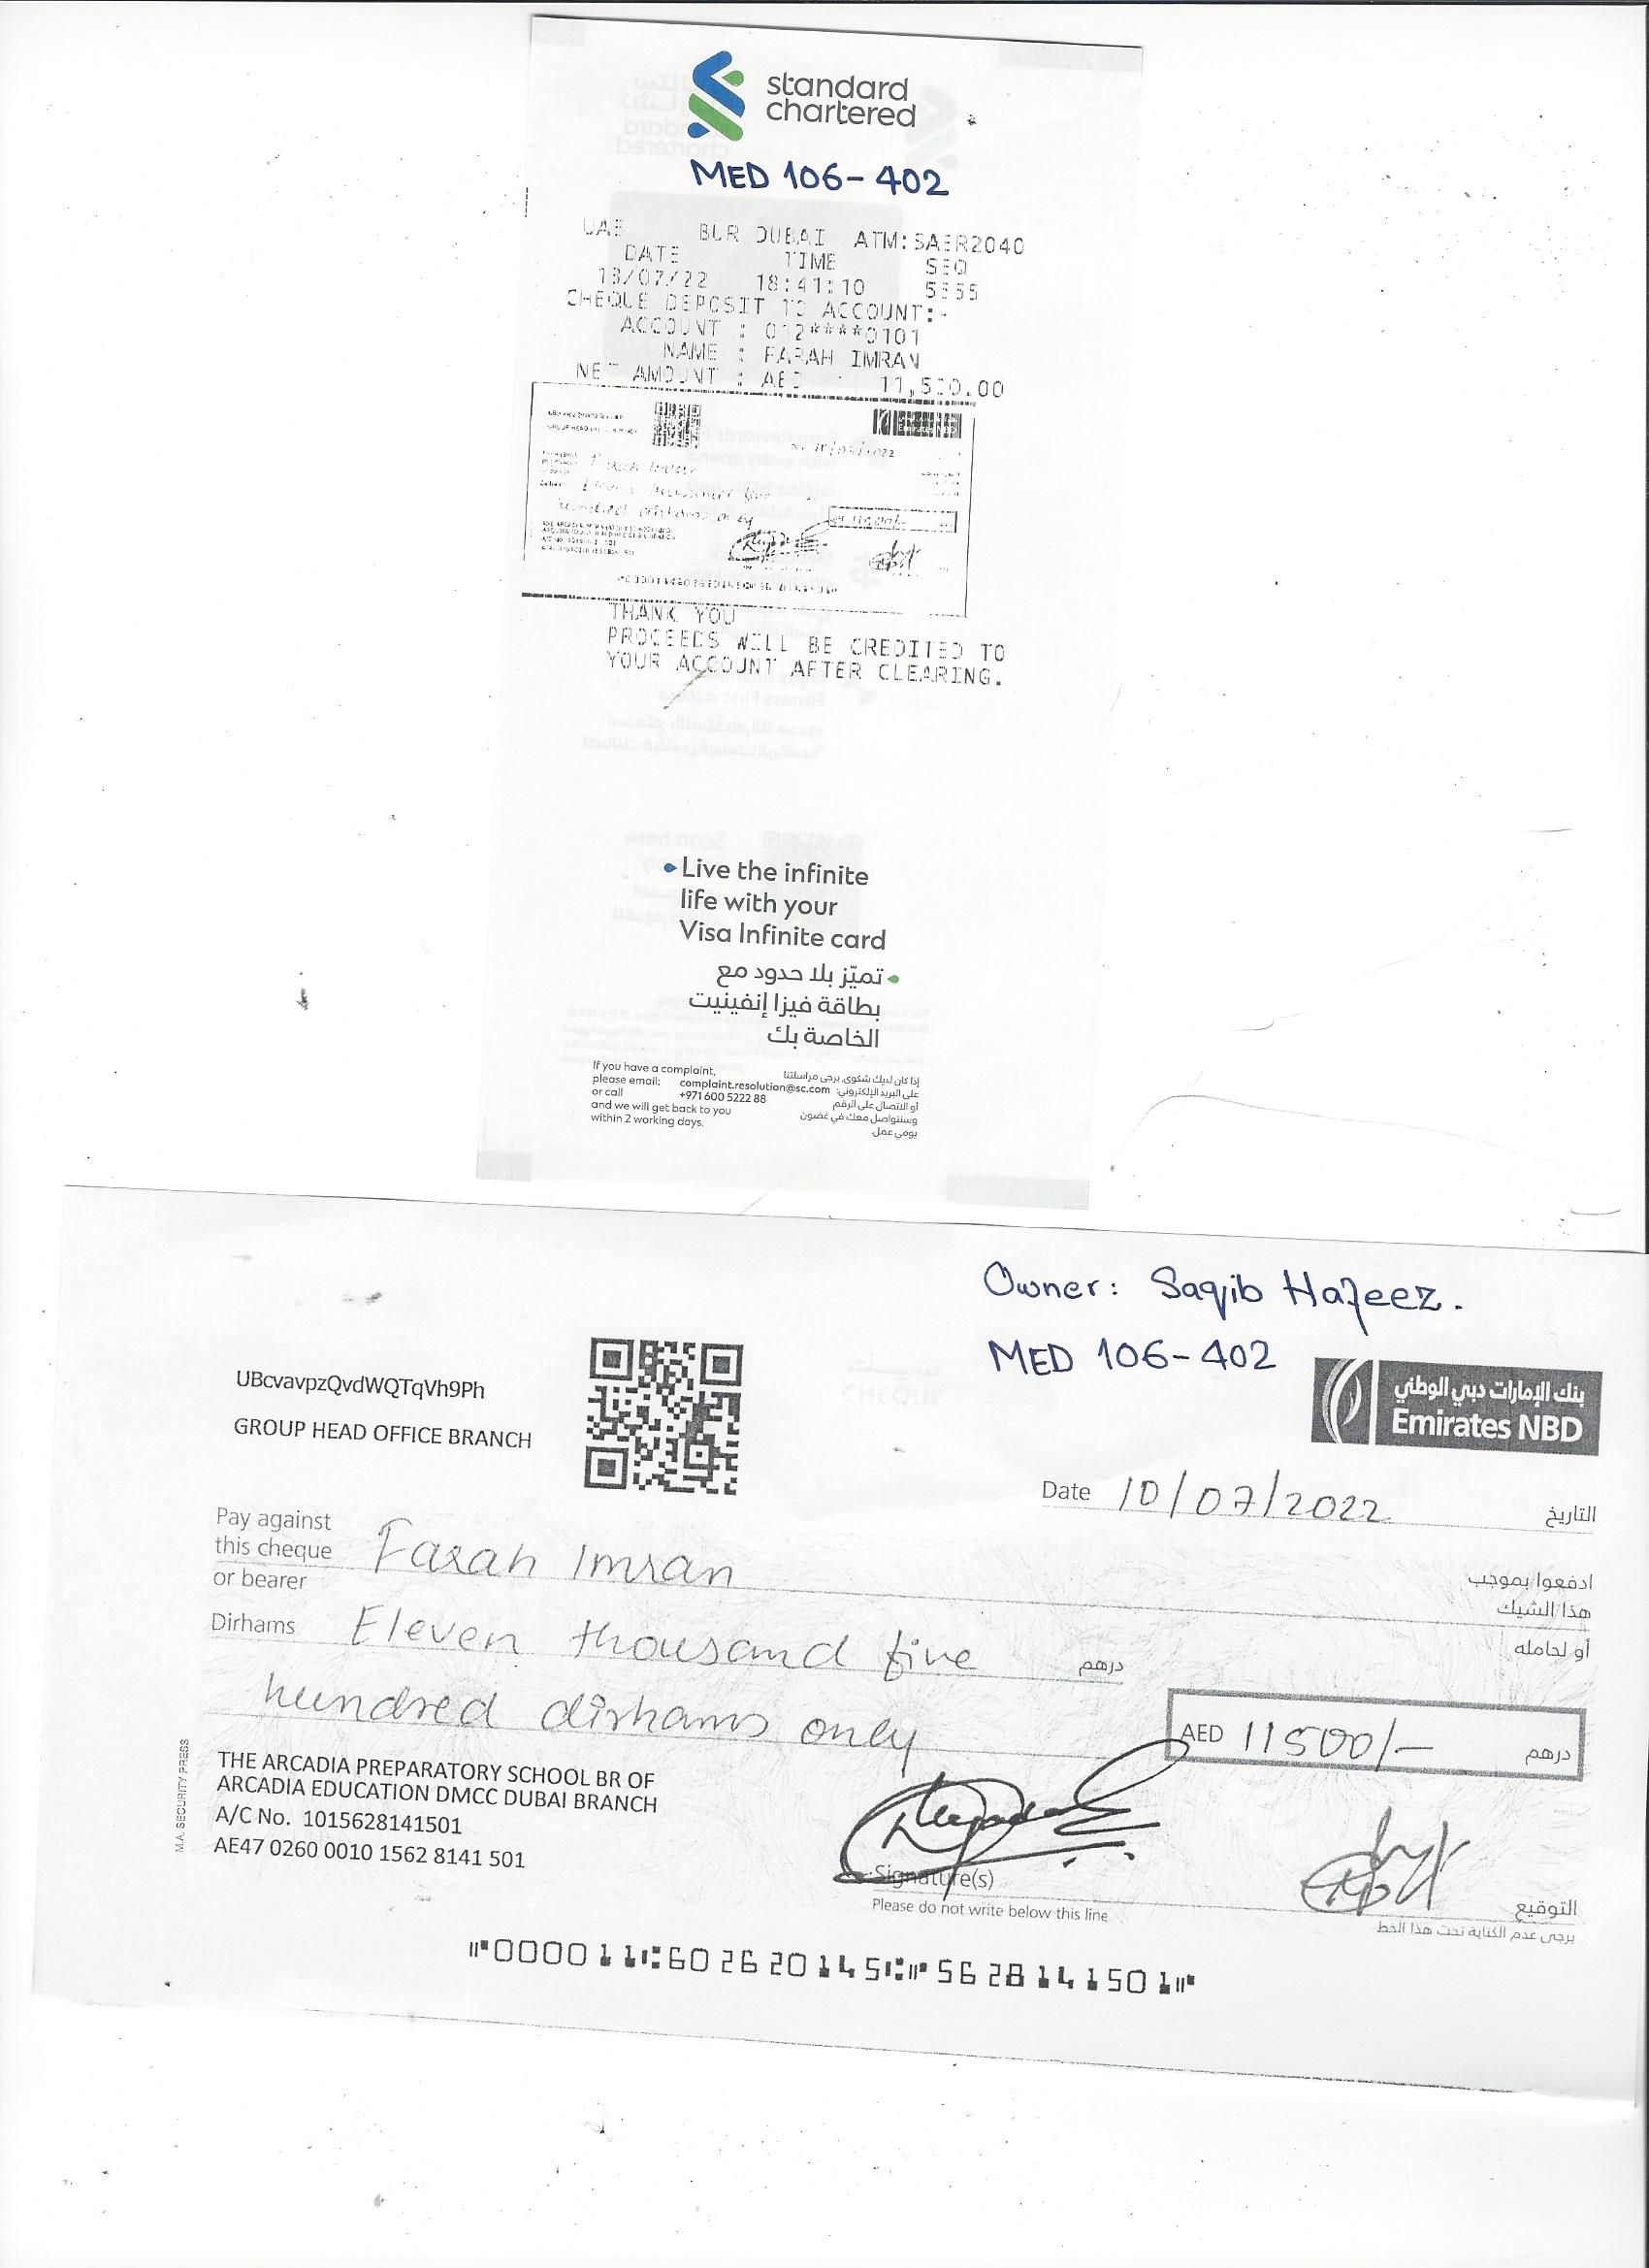 standard
chartered
MED 106-402
UAE BUR DUBAI ATM:SAER2040
DATE TIME SEQ
13/07/22 18:41:10
CHEQUE DEPOSIT TO ACCOUNT:-
ACCOUNT : 012****0101
NAME : FARAH IMRAN
NET AMOUNT : AED 11,500.00
Emirates NBD
THANK YOU
PROCEEDS WILL BE CREDITED TO
YOUR ACCOUNT AFTER CLEARING.
Live the infinite
life with your
Visa Infinite card
تميّز بلا حدود مع
بطاقة فيزا إنفينيت
الخاصة بك
If you have a complaint,
please email: complaint.resolution@sc.com
or call +971 600 5222 88
and we will get back to you
within 2 working days.
إذا كان لديك شكوى، يرجى مراسلتنا
على البريد الإلكتروني:
أو الاتصال على الرقم
وسنتواصل معك في غضون
يومي عمل.
Owner: Saqib Hafeez.
MED 106-402
UBcvavpzQvdWQTqVh9Ph
GROUP HEAD OFFICE BRANCH
CHEQUE
بنك الإمارات دبي الوطني
Emirates NBD
Date 10/07/2022 التاريخ
Pay against
this cheque
or bearer
Farah Imran
ادفعوا بموجب
هذا الشيك
أو لحامله
Dirhams Eleven thousand five درهم
hundred dirhams only
AED 11500/- درهم
M.A. SECURITY PRESS
THE ARCADIA PREPARATORY SCHOOL BR OF
ARCADIA EDUCATION DMCC DUBAI BRANCH
A/C No. 1015628141501
AE47 0260 0010 1562 8141 501
Signature(s) التوقيع
Please do not write below this line
يرجى عدم الكتابة تحت هذا الخط
⑈000011⑆602620145⑆⑈5628141501⑈